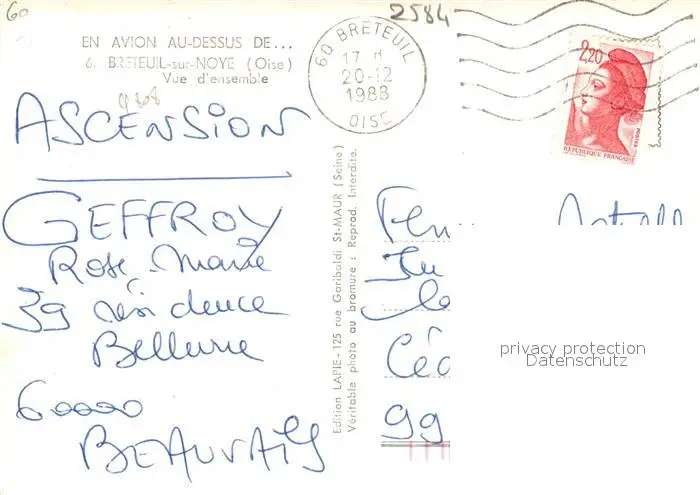 60
2584
EN AVION AU-DESSUS DE...
6. BRETEUIL-sur-NOYE (Oise)
Vue d'ensemble
60 BRETEUIL
17 H
20-12
1988
OISE
2,20
POSTES
REPUBLIQUE FRANÇAISE
ASCENSION
GEFFROY
Rose Marie
39 résidence
Bellevue
60000
BEAUVAIS
Edition LAPIE - 125 rue Garibaldi St-MAUR (Seine)
Véritable photo au bromure : Reprod. Interdite.
Céd
99
privacy protection
Datenschutz